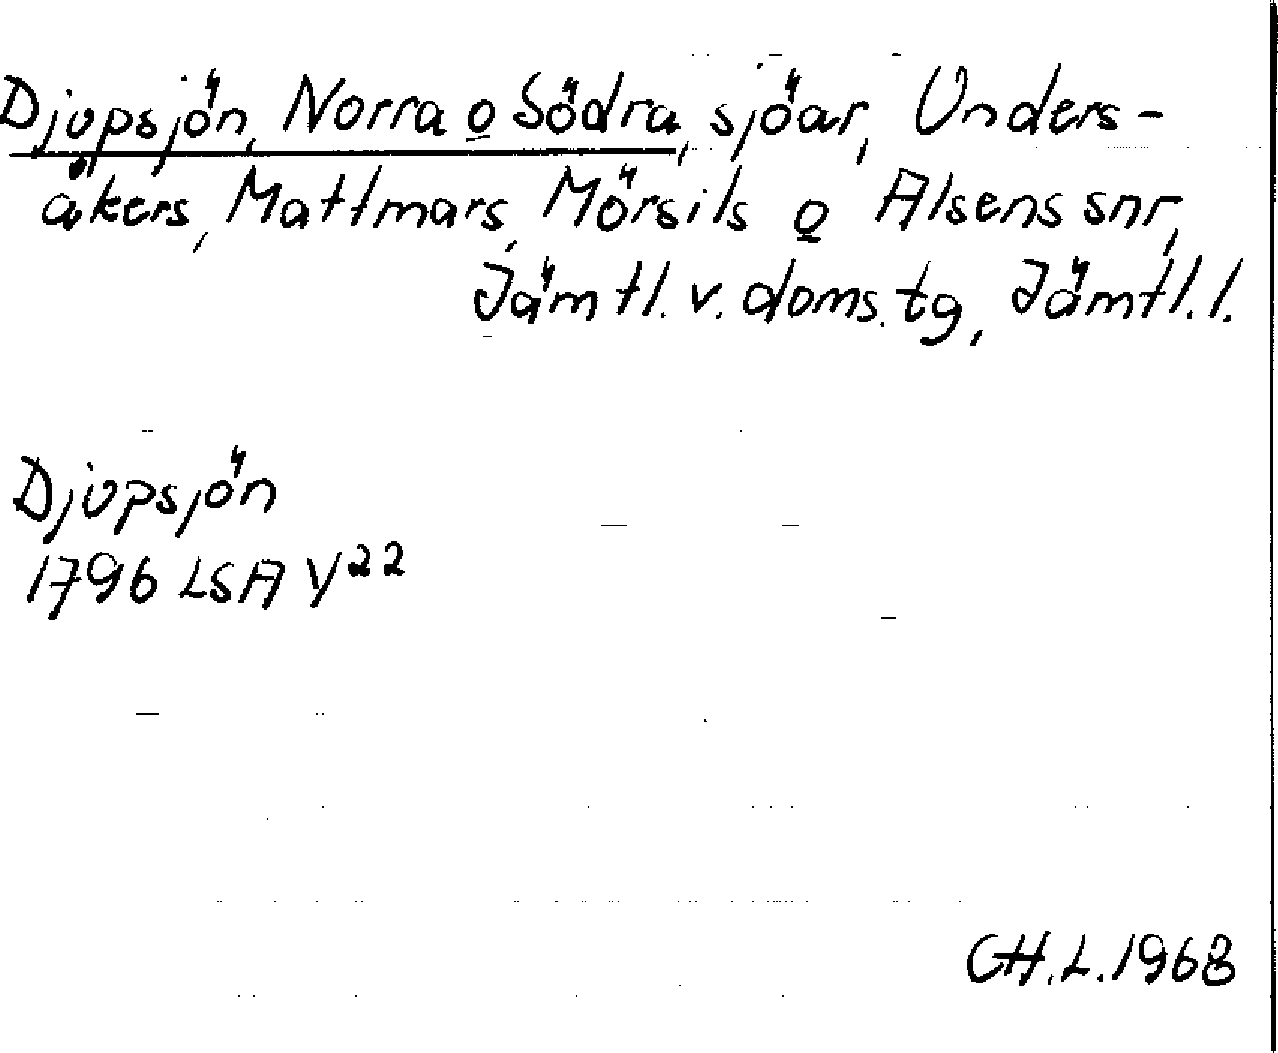 Djupsjön, Norra o Södra, sjöar, Unders-
åkers, Mattmars, Mörsils o Alsens snr,
Jämtl. v. doms. tg, Jämtl. l.
Djupsjön
1796 LSA Y²²
CH.L. 1968